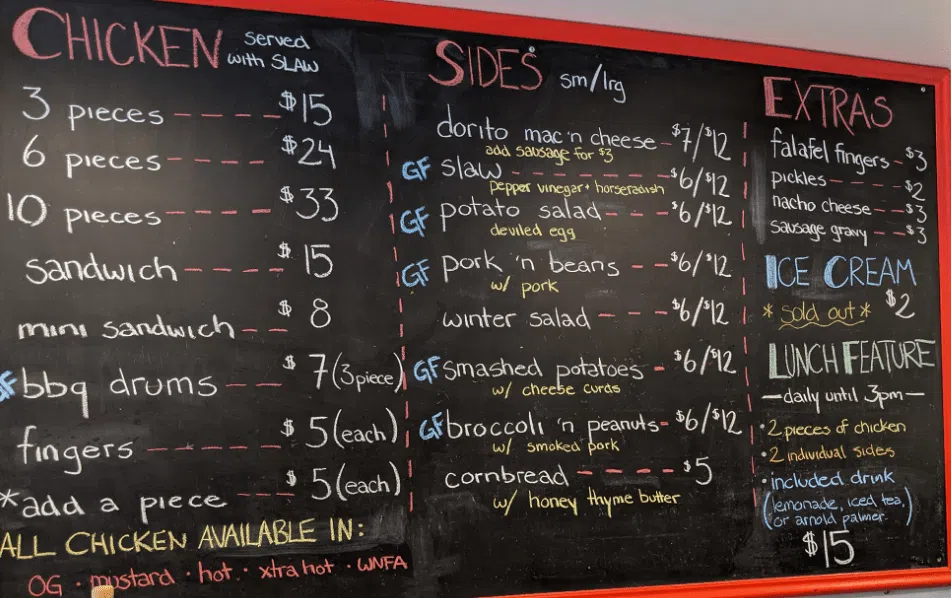 CHICKEN served with SLAW
3 pieces - - - - - $15
6 pieces - - - - - $24
10 pieces - - - - - $33
sandwich - - - - $15
mini sandwich - - $8
GF bbq drums - - $7 (3 piece)
fingers - - - - - - $5 (each)
*add a piece - - - $5 (each)
ALL CHICKEN AVAILABLE IN:
OG · mustard · hot · xtra hot · WNFA
SIDES sm/lrg
dorito mac 'n cheese - $7/$12
add sausage for $3
GF slaw - - - - - - - - $6/$12
pepper vinegar + horseradish
GF potato salad - - - $6/$12
deviled egg
GF pork 'n beans - - $6/$12
w/ pork
winter salad - - - $6/$12
GF smashed potatoes - $6/$12
w/ cheese curds
GF broccoli 'n peanuts - $6/$12
w/ smoked pork
cornbread - - - - - $5
w/ honey thyme butter
EXTRAS
falafel fingers - $3
pickles - - - - - $2
nacho cheese - - $3
sausage gravy - - $3
ICE CREAM
* sold out * $2
LUNCH FEATURE
— daily until 3pm —
· 2 pieces of chicken
· 2 individual sides
· included drink
(lemonade, iced tea,
or arnold palmer)
$15